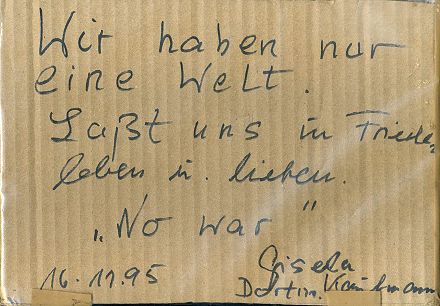 Wir haben nur
eine Welt.
Laßt uns in Friede
leben u. lieben.
„No war"
Gisela
16.11.95